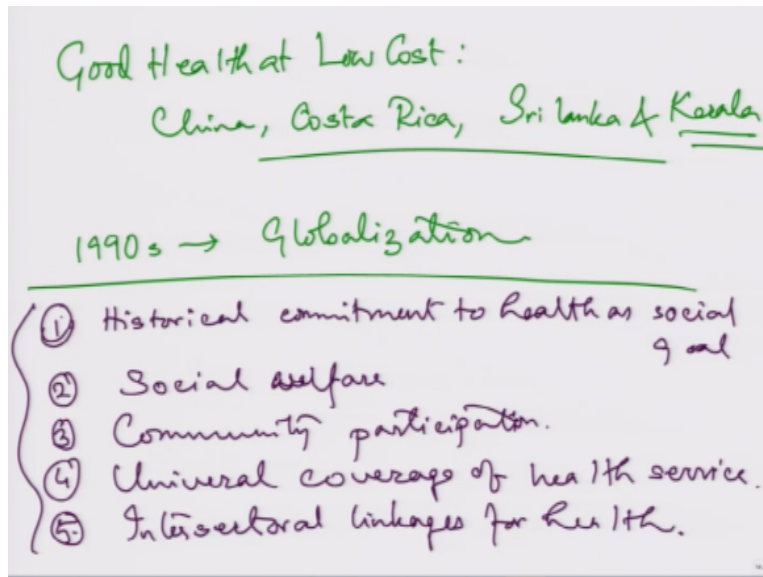 Good Health at Low Cost:
China, Costa Rica, Sri Lanka & Kerala
1990s → Globalization
① Historical commitment to health as social
goal
② Social welfare
③ Community participation.
④ Univeral coverage of health service.
⑤ Intersectoral linkages for health.